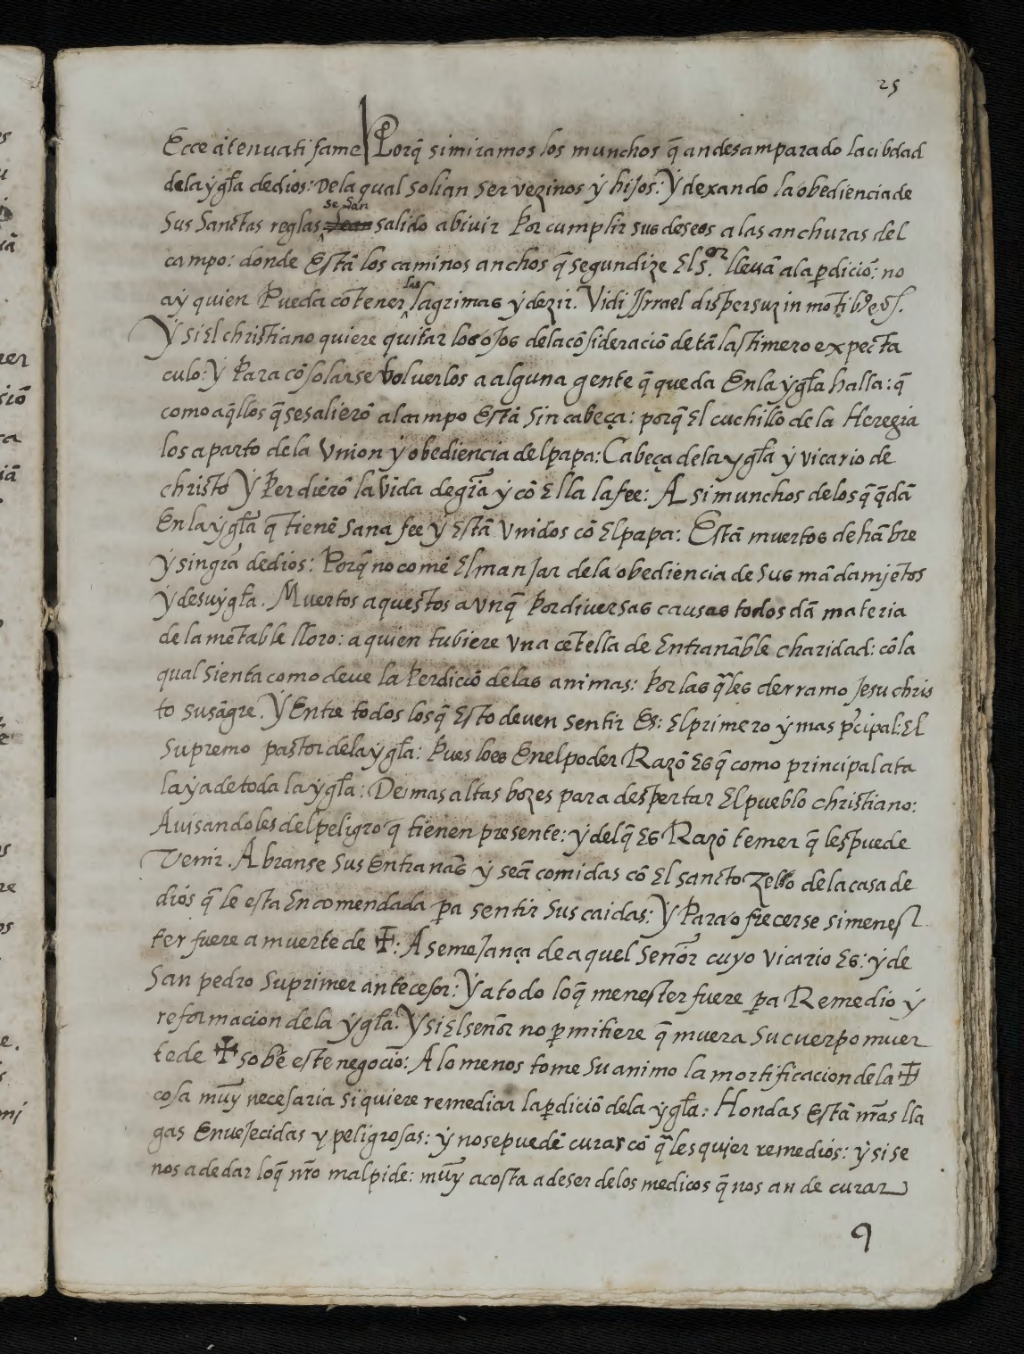 25
Ecce atenuati fame Porq̃ si miramos los munchos q̃ an desamparado la cibdad
dela ygłia de dios: De la qual solian ser vezinos y hijos: Y dexando la obediencia de
sus sanctas reglas se san salido a biuir por cumplir sus deseos a las anchuras del
campo: donde Estã los caminos anchos q̃ segun dize El s.ᵒʳ lleuã a la p̱diciõ: no
ay quien Pueda cõtener las lagrimas y dezir. Vidi Isrrael dispersuz in mõtibꝰ & ỹ.
Y si El christiano quiere quitar los ojos de la cõsideraciõ de tã lastimero expecta
culo: Y Para cõsolarse boluerlos a alguna gente q̃ queda En la ygłia halla: q̃
como aq̃llos q̃ se salierõ al campo Estã sin cabeça: porq̃ El cuchillo de la Heregia
los aparto de la Vnion y obediencia del papa: Cabeça de la ygłia y vicario de
christo Y Perdierõ la vida de grã y cõ Ella la fee: Asi munchos de los q̃ q̃dã
En la ygłia q̃ tienẽ sana fee y Estã Vnidos cõ El papa: Estã muertos de hãbre
y sin grã de dios: Porq̃ no comẽ El manjar de la obediencia de sus mãdamjẽtos
y de su ygłia. Muertos aquestos avnq̃ por diuersas causas todos dã materia
de lamẽtable lloro: a quien tubiere vna cẽtella de Entrañable charidad: cõ la
qual sienta como deue la Perdiciõ de las animas: Por las q̃les derramo Jesu chris
to su sãgre. Y Entre todos los q̃ Esto deuen sentir Es: El primero y mas p̃cipal: El
supremo pastor de la ygłia: Pues lo es En el poder Razõ Es q̃ como principal ata
laya de toda la ygłia: De mas altas bozes para despertar El pueblo christiano:
Auisandoles del peligro q̃ tienen presente: y del q̃ Es Razõ temer q̃ les puede
venir. Abranse sus Entrañas y seã comidas cõ El sancto Zello de la casa de
dios q̃ le esta Encomendada p̱a sentir sus caidas: Y Para ofrecerse si menes
ter fuere a muerte de ✠: A semejança de aquel señor cuyo vicario Es: y de
san pedro su primer antecesor: Y a todo lo q̃ menester fuere p̱a Remedio y
reformacion de la ygłia. Y si El señor no p̱mitiere q̃ muera su cuerpo muer
te de ✠ sobre este negocio: A lo menos tome su animo la mortificacion de la ✠
cosa muy necesaria si quiere remediar la p̱diciõ de la ygłia: Hondas Estã nr̃as lla
gas Enuejecidas y peligrosas: y no se puedẽ curar cõ q̃lesquier remedios: y si se
nos a de dar lo q̃ nr̃o mal pide: muy a costa a de ser de los medicos q̃ nos an de curar
9